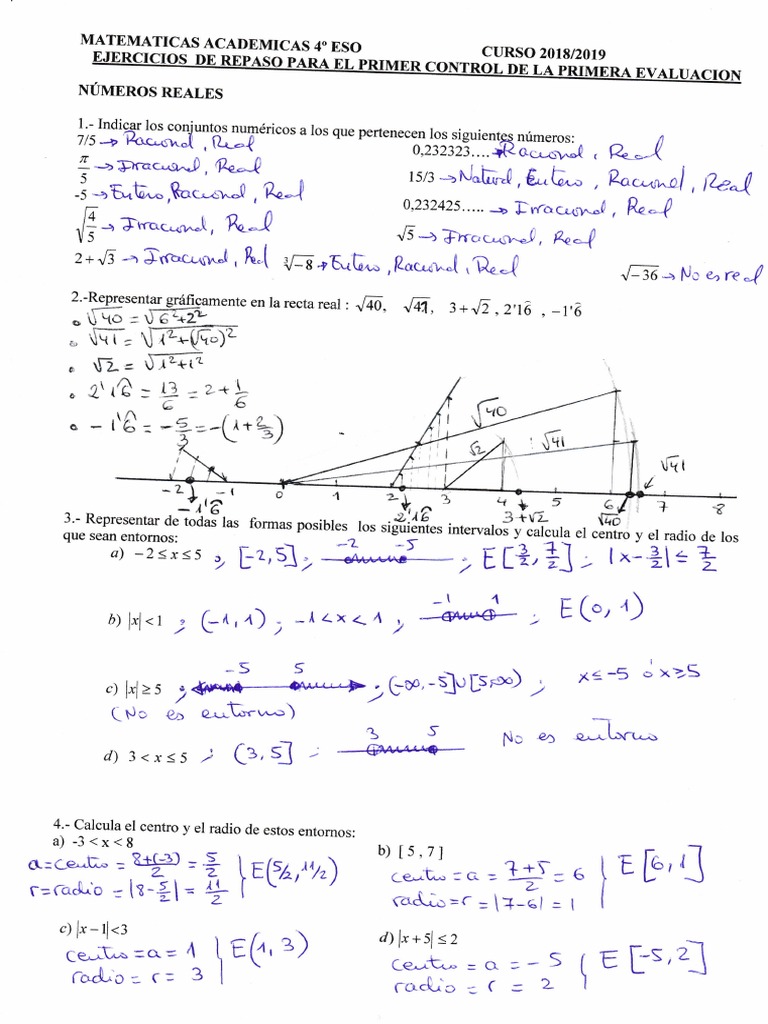 MATEMATICAS ACADEMICAS 4º ESO CURSO 2018/2019
EJERCICIOS DE REPASO PARA EL PRIMER CONTROL DE LA PRIMERA EVALUACION
NÚMEROS REALES
1.- Indicar los conjuntos numéricos a los que pertenecen los siguientes números:
7/5 → Racional, Real 0,232323…. → Racional, Real
π/5 → Irracional, Real 15/3 → Natural, Entero, Racional, Real
-5 → Entero, Racional, Real 0,232425….. → Irracional, Real
√(4/5) → Irracional, Real √5 → Irracional, Real
2 + √3 → Irracional, Real ∛-8 → Entero, Racional, Real √-36 → No es real
2.-Representar gráficamente en la recta real : √40, √41, 3 + √2 , 2'16̂ , -1'6̂
• √40 = √(6²+2²)
• √41 = √(1²+(√40)²)
• √2 = √(1²+1²)
• 2'16̂ = 13/6 = 2 + 1/6
• -1'6̂ = -5/3 = -(1+2/3)
√40 √2 √41 √41
-2 -1 0 1 2 3 4 5 6 7 8
-1'6̂ 2'16̂ 3+√2 √40
3.- Representar de todas las formas posibles los siguientes intervalos y calcula el centro y el radio de los
que sean entornos:
a) −2 ≤ x ≤ 5 ; [-2,5] ; -2 -5 ; E[3/2, 7/2] ; |x-3/2| ≤ 7/2
b) |x| < 1 ; (-1,1) ; -1<x<1 ; -1 1 ; E(0,1)
c) |x| ≥ 5 ; -5 5 ; (-∞,-5]∪[5,∞) ; x≤-5 ó x≥5
(No es entorno)
d) 3 < x ≤ 5 ; (3,5] ; 3 5 No es entorno
4.- Calcula el centro y el radio de estos entornos:
a) -3 < x < 8 b) [ 5 , 7 ]
a=centro = 8+(-3)/2 = 5/2 } E(5/2, 11/2) centro = a = 7+5/2 = 6 } E[6,1]
r=radio = |8-5/2| = 11/2 radio = r = |7-6| = 1
c) |x−1|<3 d) |x+5| ≤ 2
centro = a = 1 } E(1,3) centro = a = -5 } E[-5,2]
radio = r = 3 radio = r = 2